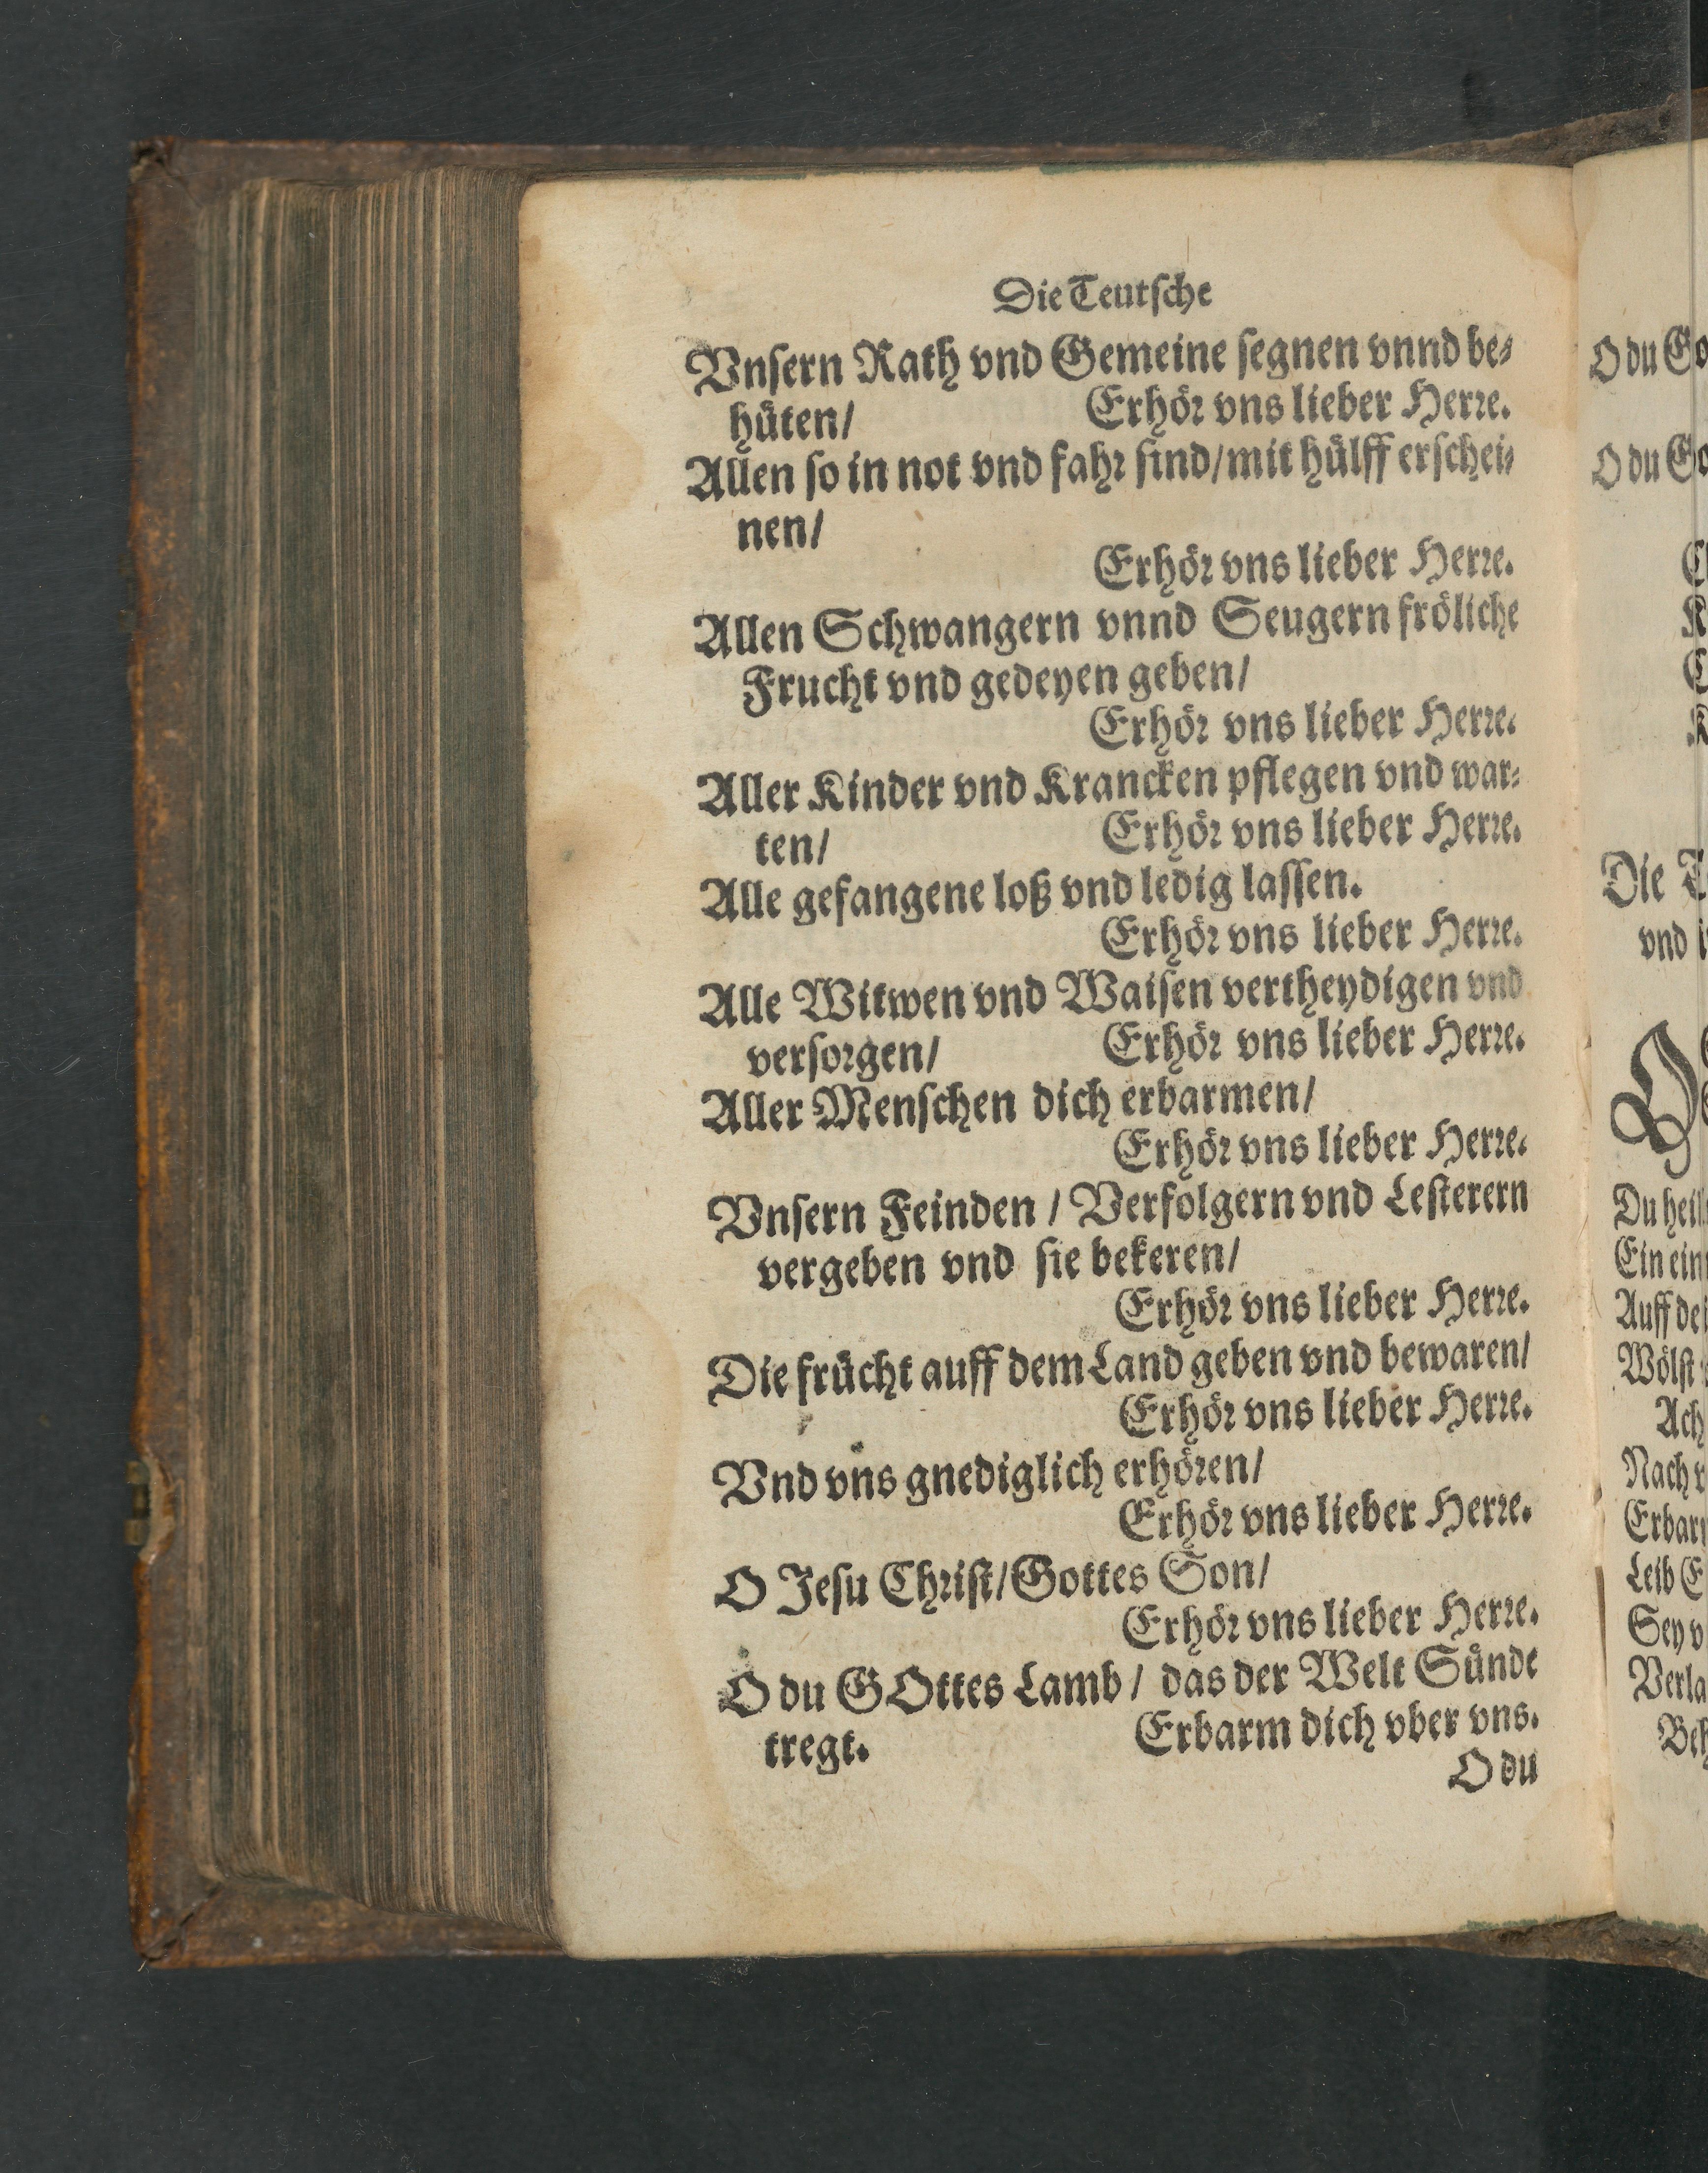 Die Teutſche
Vnſern Rath vnd Gemeine ſegnen vnnd be⸗
hüten/ Erhör vns lieber Herre.
Allen ſo in not vnd fahr ſind/mit hülff erſchei⸗
nen/
Erhör vns lieber Herre.
Allen Schwangern vnnd Seugern fröliche
Frucht vnd gedeyen geben/
Erhör vns lieber Herre.
Aller Kinder vnd Krancken pflegen vnd war⸗
ten/ Erhör vns lieber Herre.
Alle gefangene loß vnd ledig laſſen.
Erhör vns lieber Herre.
Alle Witwen vnd Waiſen vertheydigen vnd
verſorgen/ Erhör vns lieber Herre.
Aller Menſchen dich erbarmen/
Erhör vns lieber Herre.
Vnſern Feinden / Verfolgern vnd Leſterern
vergeben vnd ſie bekeren/
Erhör vns lieber Herre.
Die frücht auff dem Land geben vnd bewaren/
Erhör vns lieber Herre.
Vnd vns gnediglich erhören/
Erhör vns lieber Herre.
O Jeſu Chriſt/Gottes Son/
Erhör vns lieber Herre.
O du GOttes Lamb / das der Welt Sünde
tregt. Erbarm dich vber vns.
O du
O du
O du
Die
vnd
Du
Ein
Auff
Wölſt
Ach
Nach
Leib
Sey